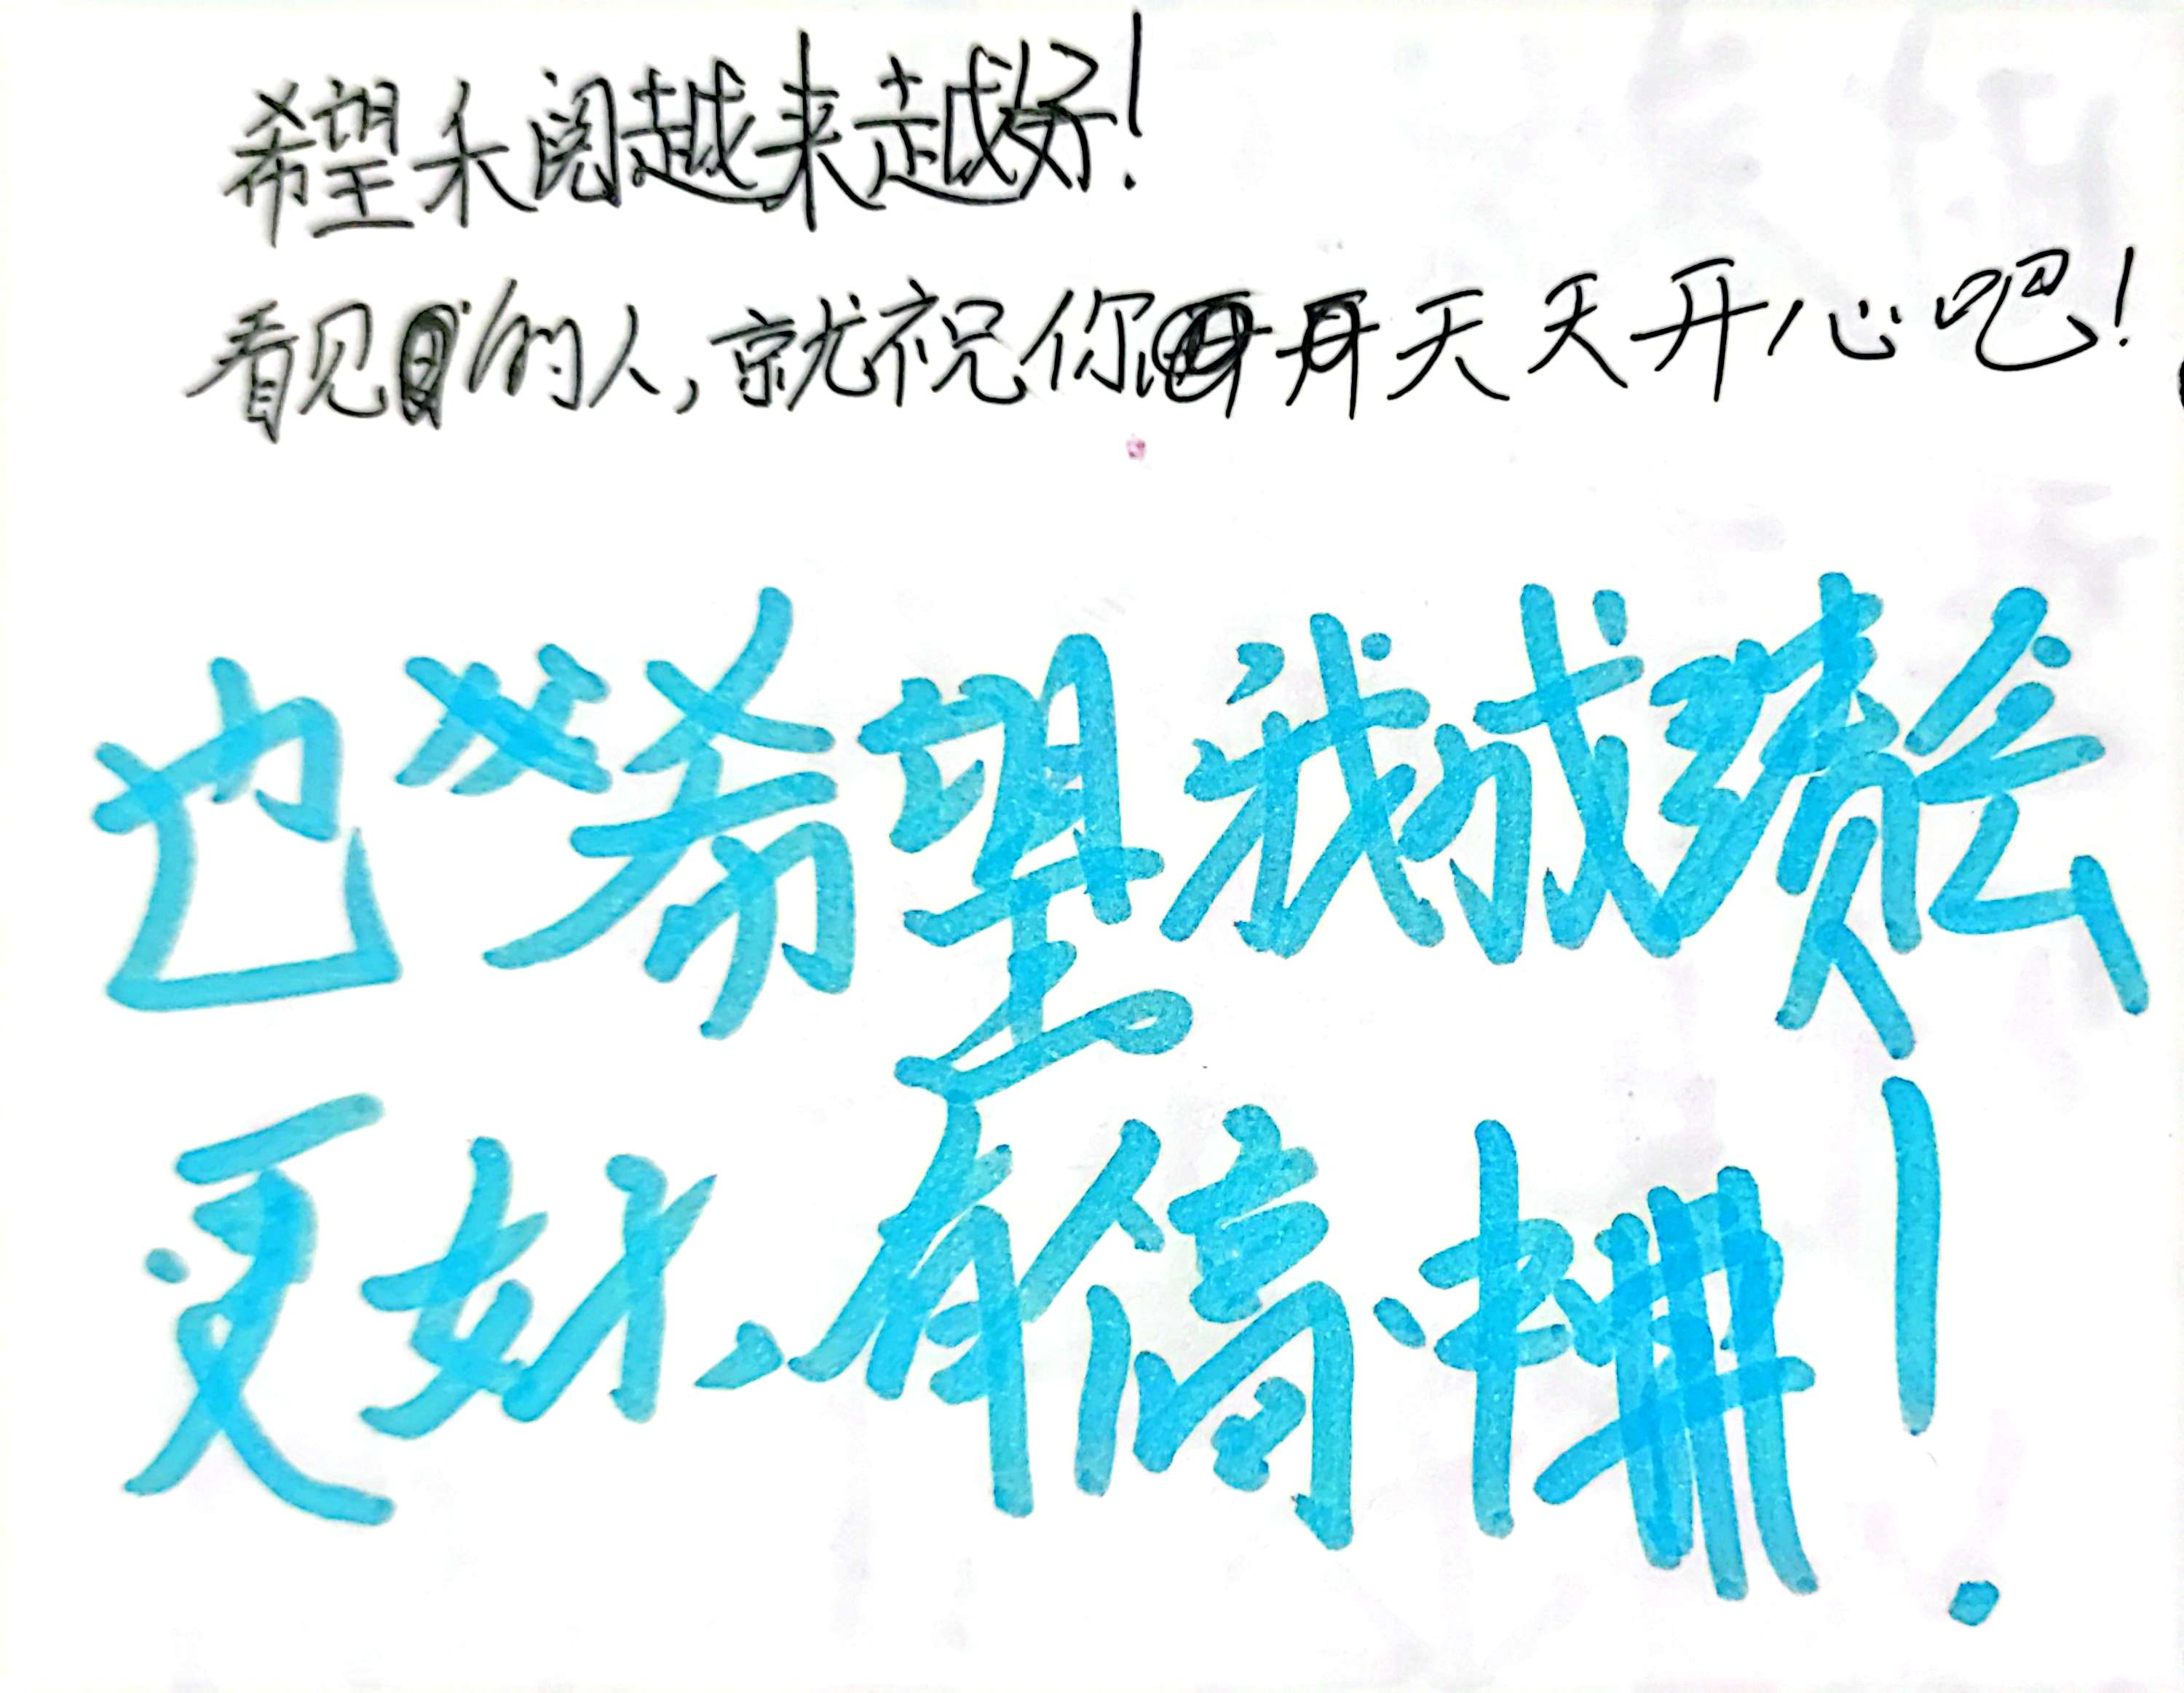 希望禾阅越来越好！
看见的人，就祝你天天开心吧！
也希望我成绩会
更好、有信心！